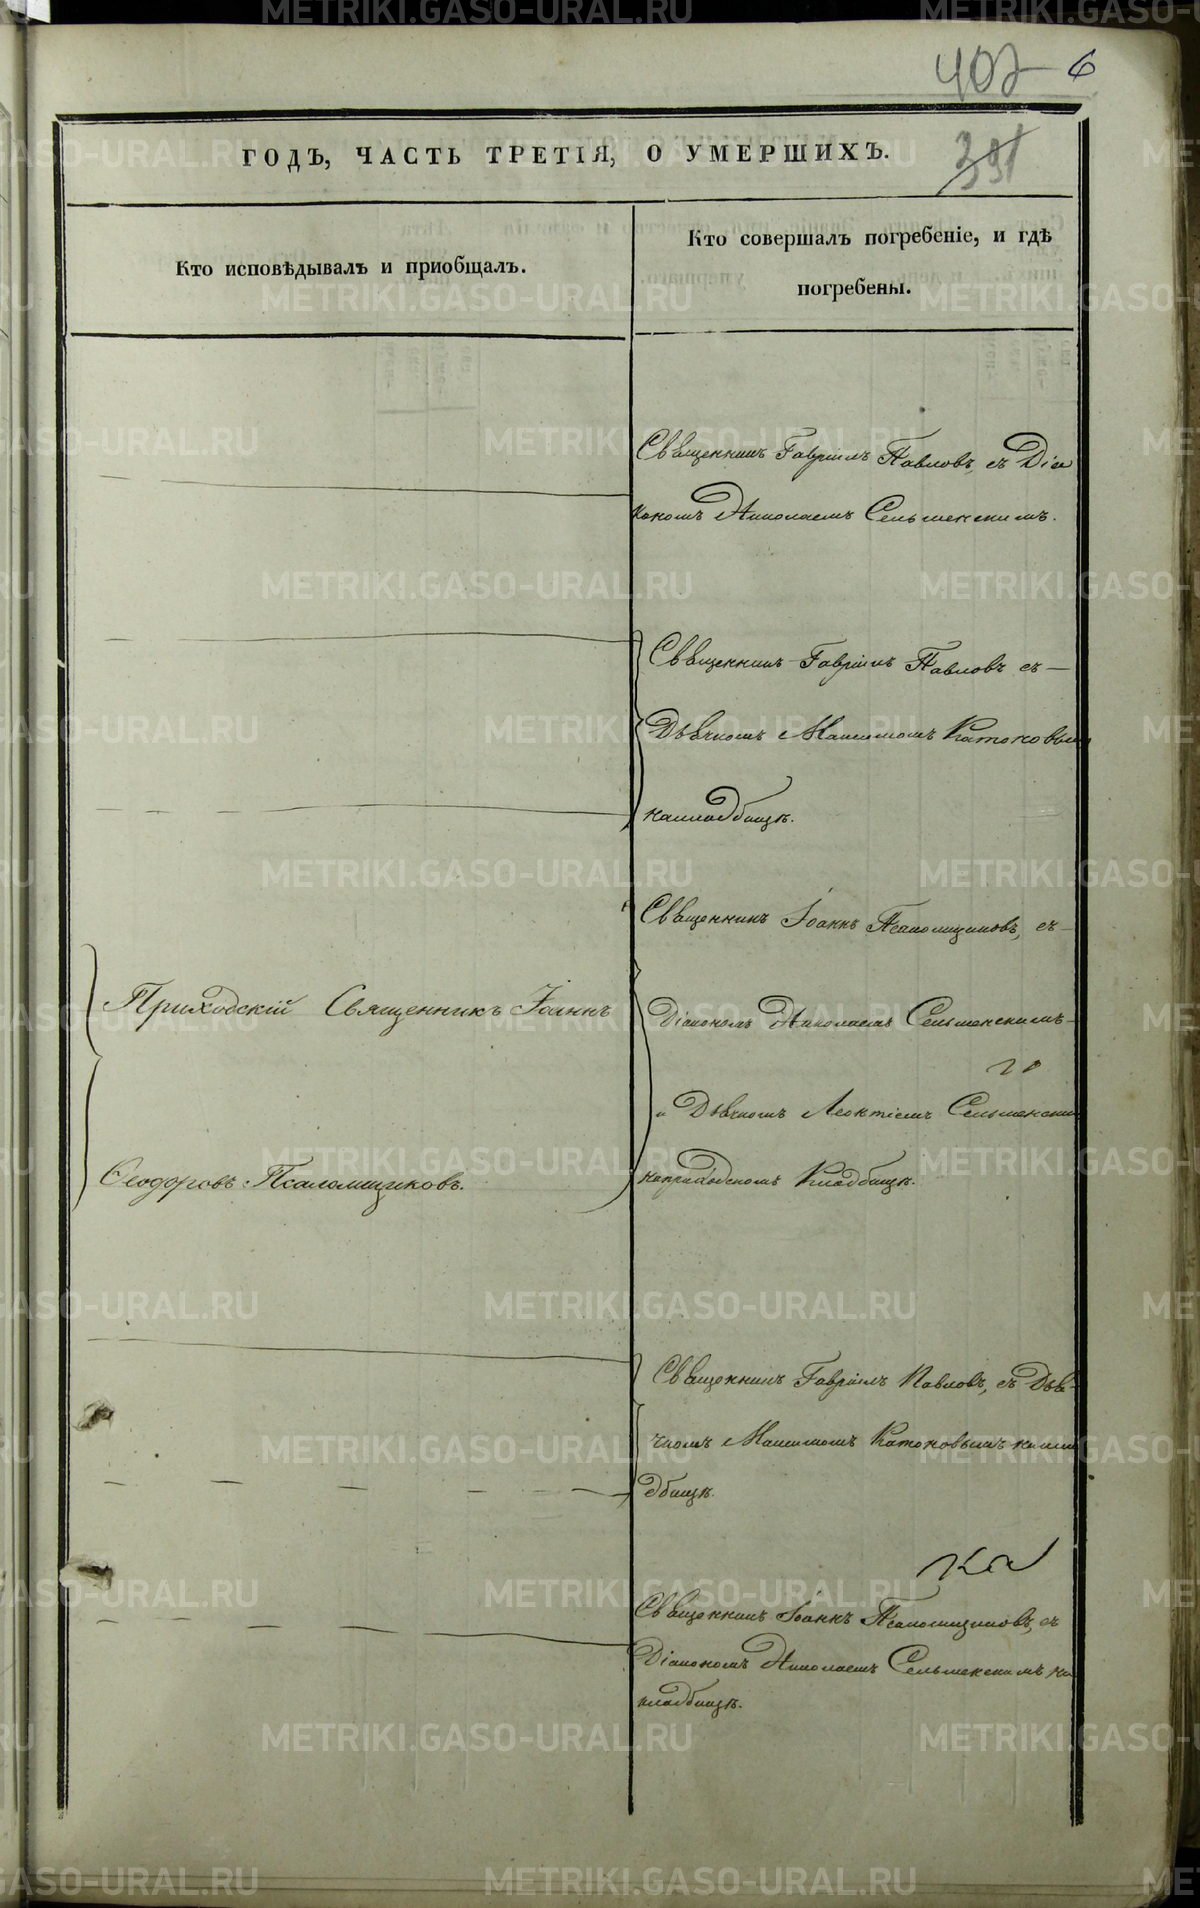 402 6
391
ГОДЪ, ЧАСТЬ ТРЕТІЯ, О УМЕРШИХЪ.
Кто исповѣдывалъ и приобщалъ.
Кто совершалъ погребеніе, и гдѣ
погребены.
Священникъ Гавріилъ Павловъ, съ Діа
кономъ Николаемъ Сельменскимъ.
Священникъ Гавріилъ Павловъ съ
Дьячкомъ Максимомъ Катоковымъ
накладбищѣ.
Священникъ Іоаннъ Псаломщиковъ, съ
Приходскій Священникъ Іоаннъ
Діакономъ Николаемъ Сельменскимъ
и Дьячкомъ Леонтіемъ Сельменским
Ѳеодоровъ Псаломщиковъ.
наприходскомъ Кладбищѣ.
Священникъ Гавріилъ Павловъ, съ Дья-
чкомъ Максимомъ Катоковымъ накла
дбищѣ.
Священникъ Іоаннъ Псаломщиковъ, съ
Діакономъ Николаемъ Сельменскимъ на
кладбищѣ.
METRIKI.GASO-URAL.RU